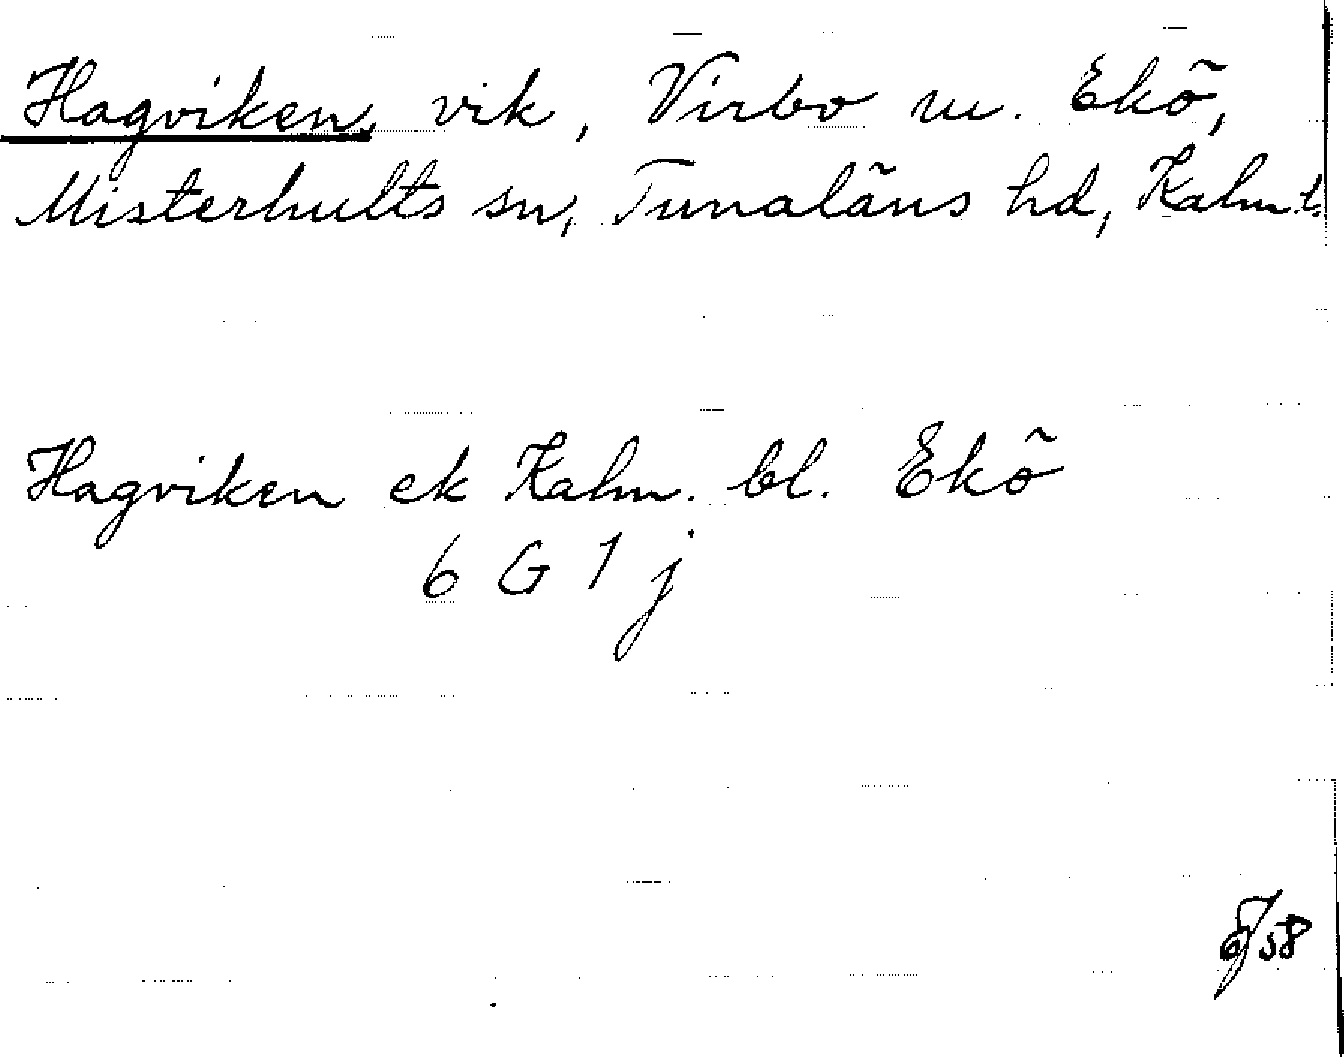 Hagviken, vik, Virbo m. Ekö,
Misterhults sn, Tunaläns hd, Kalm.l.
Hagviken ek Kalm. bl. Ekö
6 G 1 j